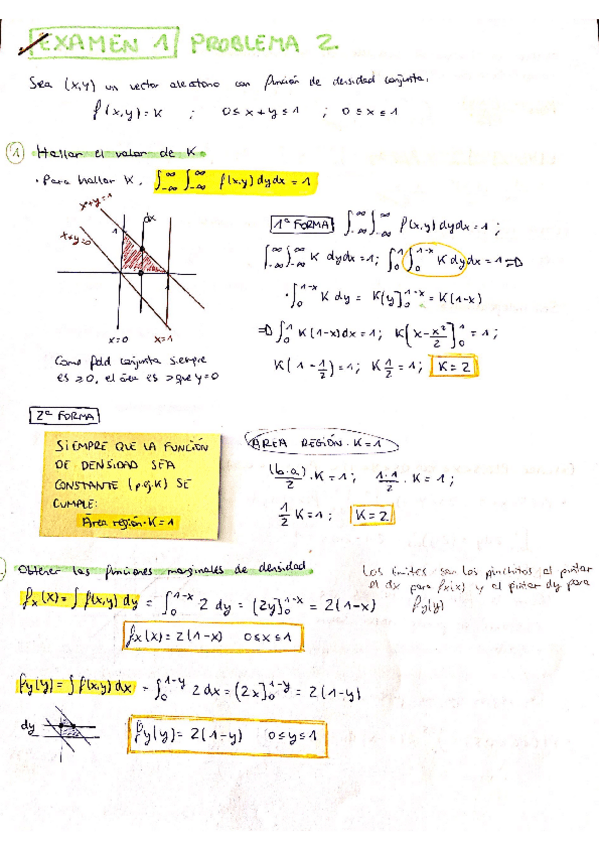 EXAMEN 1 PROBLEMA 2.
Sea (x,y) un vector aleatorio con función de densidad conjunta.
f(x,y)=K ; 0≤x+y≤1 ; 0≤x≤1
1) Hallar el valor de K.
• Para hallar K, ∫_{-∞}^{∞} ∫_{-∞}^{∞} f(x,y) dy dx = 1
x+y=1
x+y=0
dx
1
x=0 x=1
Como fdd conjunta siempre
es ≥0, el área es > que y=0
1ª FORMA ∫_{-∞}^{∞} ∫_{-∞}^{∞} f(x,y) dydx = 1 ;
∫_{-∞}^{∞} ∫_{-∞}^{∞} K dydx = 1; ∫_0^1 ∫_0^{1-x} K dy dx = 1 ⇒
• ∫_0^{1-x} K dy = K[y]_0^{1-x} = K(1-x)
⇒ ∫_0^1 K(1-x)dx = 1 ; K[x - x²/2]_0^1 = 1 ;
K(1 - 1/2) = 1; K 1/2 = 1; K=2
2ª FORMA
SIEMPRE QUE LA FUNCIÓN
DE DENSIDAD SEA
CONSTANTE (p.ej. K) SE
CUMPLE:
Área región·K=1
ÁREA REGIÓN·K=1
(b·a)/2 · K = 1 ; 1·1/2 · K = 1 ;
1/2 K=1 ; K=2
Obtener las funciones marginales de densidad.
Los límites son los pinchitos al pintar
el dx para fx(x) y al pintar dy para
fy(y)
fx(x) = ∫ f(x,y) dy = ∫_0^{1-x} 2 dy = (2y]_0^{1-x} = 2(1-x)
fx(x) = 2(1-x) 0≤x≤1
fy(y) = ∫ f(x,y) dx = ∫_0^{1-y} 2dx = (2x]_0^{1-y} = 2(1-y)
dy
fy(y) = 2(1-y) 0≤y≤1